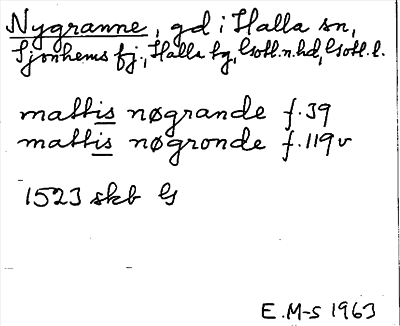 Nygranne, gd i Halla sn,
Sjonhems fj., Halla tg, Gotl.n.hd, Gotl.l.
mattis nøgrande f.39
mattis nøgronde f.119v
1523 skb G
E.M-s 1963